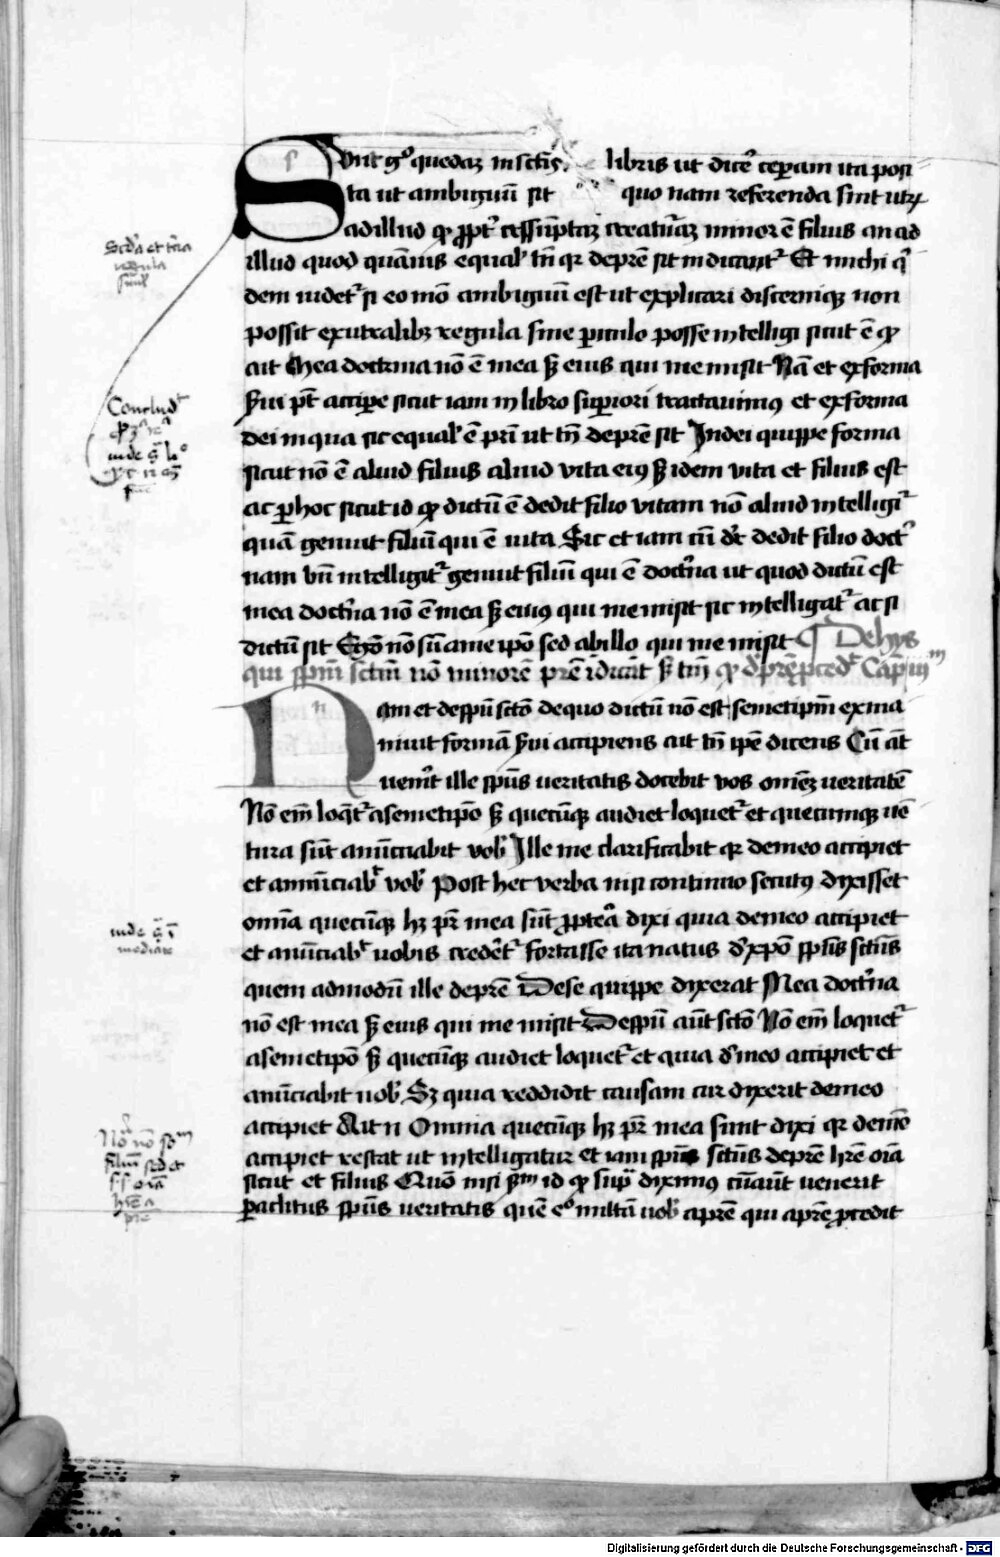 Sunt g° quedaz in sctis libris ut dice᷑ ceperam ita posi
ta ut ambiguū sit quo nam referenda sint utꝝ
ad illud qꝫ ꝓpt᷑ assūptaꝫ creaturaꝫ minor ē filius an ad
illud quod quāuis equal᷑ tn̄ qꝛ de pre̅ sit indicant᷑ Et michi qͥ
dem uidet᷑ si eo mō ambiguū est ut explicari discerniqꝫ non
possit ex utralibꝫ regula sine ꝑiculo posse intelligi sicut ē qꝫ
ait Mea doctrina nō ē mea sꝫ eius qui me misit Nā et ex forma
ẜui pt̄ accipe sicut iam in libro supiori tractauimꝰ et ex forma
dei in qua sic equal᷑ ē pri ut tn̄ de pre̅ sit In dei quippe forma
sicut nō ē aliud filius aliud vita eiꝰ sꝫ idem vita et filius est
ac ꝑ hoc sicut id qꝫ dictū ē dedit filio vitam nō aliud intelligi᷑
quā genuit filiū qui ē uita Sic et iam cū dr̄ dedit filio doct᷑
nam bn̄ intelligit᷑ genuit filiū qui ē doctͥna ut quod dictū est
mea doctͥna nō ē mea sꝫ eiꝰ qui me misit sic intelligat᷑ ac si
dictū sit Ego nō sū a me ip̄o sed ab illo qui me misit ¶ De hijs
qui spm̄ sctm̄ nō minorē pre̅ īdicāt sꝫ tm̄ qꝫ d̓ pre̅ ꝓced᷑ Capm̄ iiiᵐ
Nam et de spū scto de quo dictū nō est semetipm̄ exina
niuit formā ẜui accipiens ait tn̄ ipe dicens Cū āt
uenit ille spūs ueritatis docebit vos omēꝫ ueritatē
Nō em̄ loqt᷑ a semetip̄o sꝫ quecūqꝫ audiet loquet᷑ et quecumqꝫ uē
tura sūt anūciabit vob᷑ Ille me clarificabit qꝛ de meo accipiet
et annūciab᷑ vob᷑ Post hec verba nisi continuo secutꝰ dixisset
omīa quecūqꝫ hꝫ pr̄ mea sūt ꝓptea dixi quia de meo accipiet
et anūciab᷑ uobis crederet᷑ fortasse ita natus d̓ xpō spūs sctūs
quem admodū ille de pre̅ De se quippe dixerat Mea doctͥna
nō est mea sꝫ eius qui me misit De spū aūt scto Nō em̄ loquet᷑
a semetip̄o sꝫ quecūqꝫ audiet loquet᷑ et quia d̓ meo accipiet et
anūciabit uob᷑ Sꝫ quia reddidit causam cur dixerit de meo
accipiet Ait n̄ Omnia quecūqꝫ hꝫ pr̄ mea sunt dixi qꝛ de meo
accipiet restat ut intelligatur et iam spūs sctūs de pre̅ hr̄e oīa
sicut et filius Quō nisi ẜm id qꝫ supͣ diximꝰ cū aūt uenerit
ꝑaclitus spūs ueritatis quē e° mittā uob᷑ a pre̅ qui a pre̅ ꝓcedit
Scda et tcia
regula
simul
Concludit
inde
inde
mediate
filiū sed et
hr̄e a
pre̅
Digitalisierung gefördert durch die Deutsche Forschungsgemeinschaft - DFG